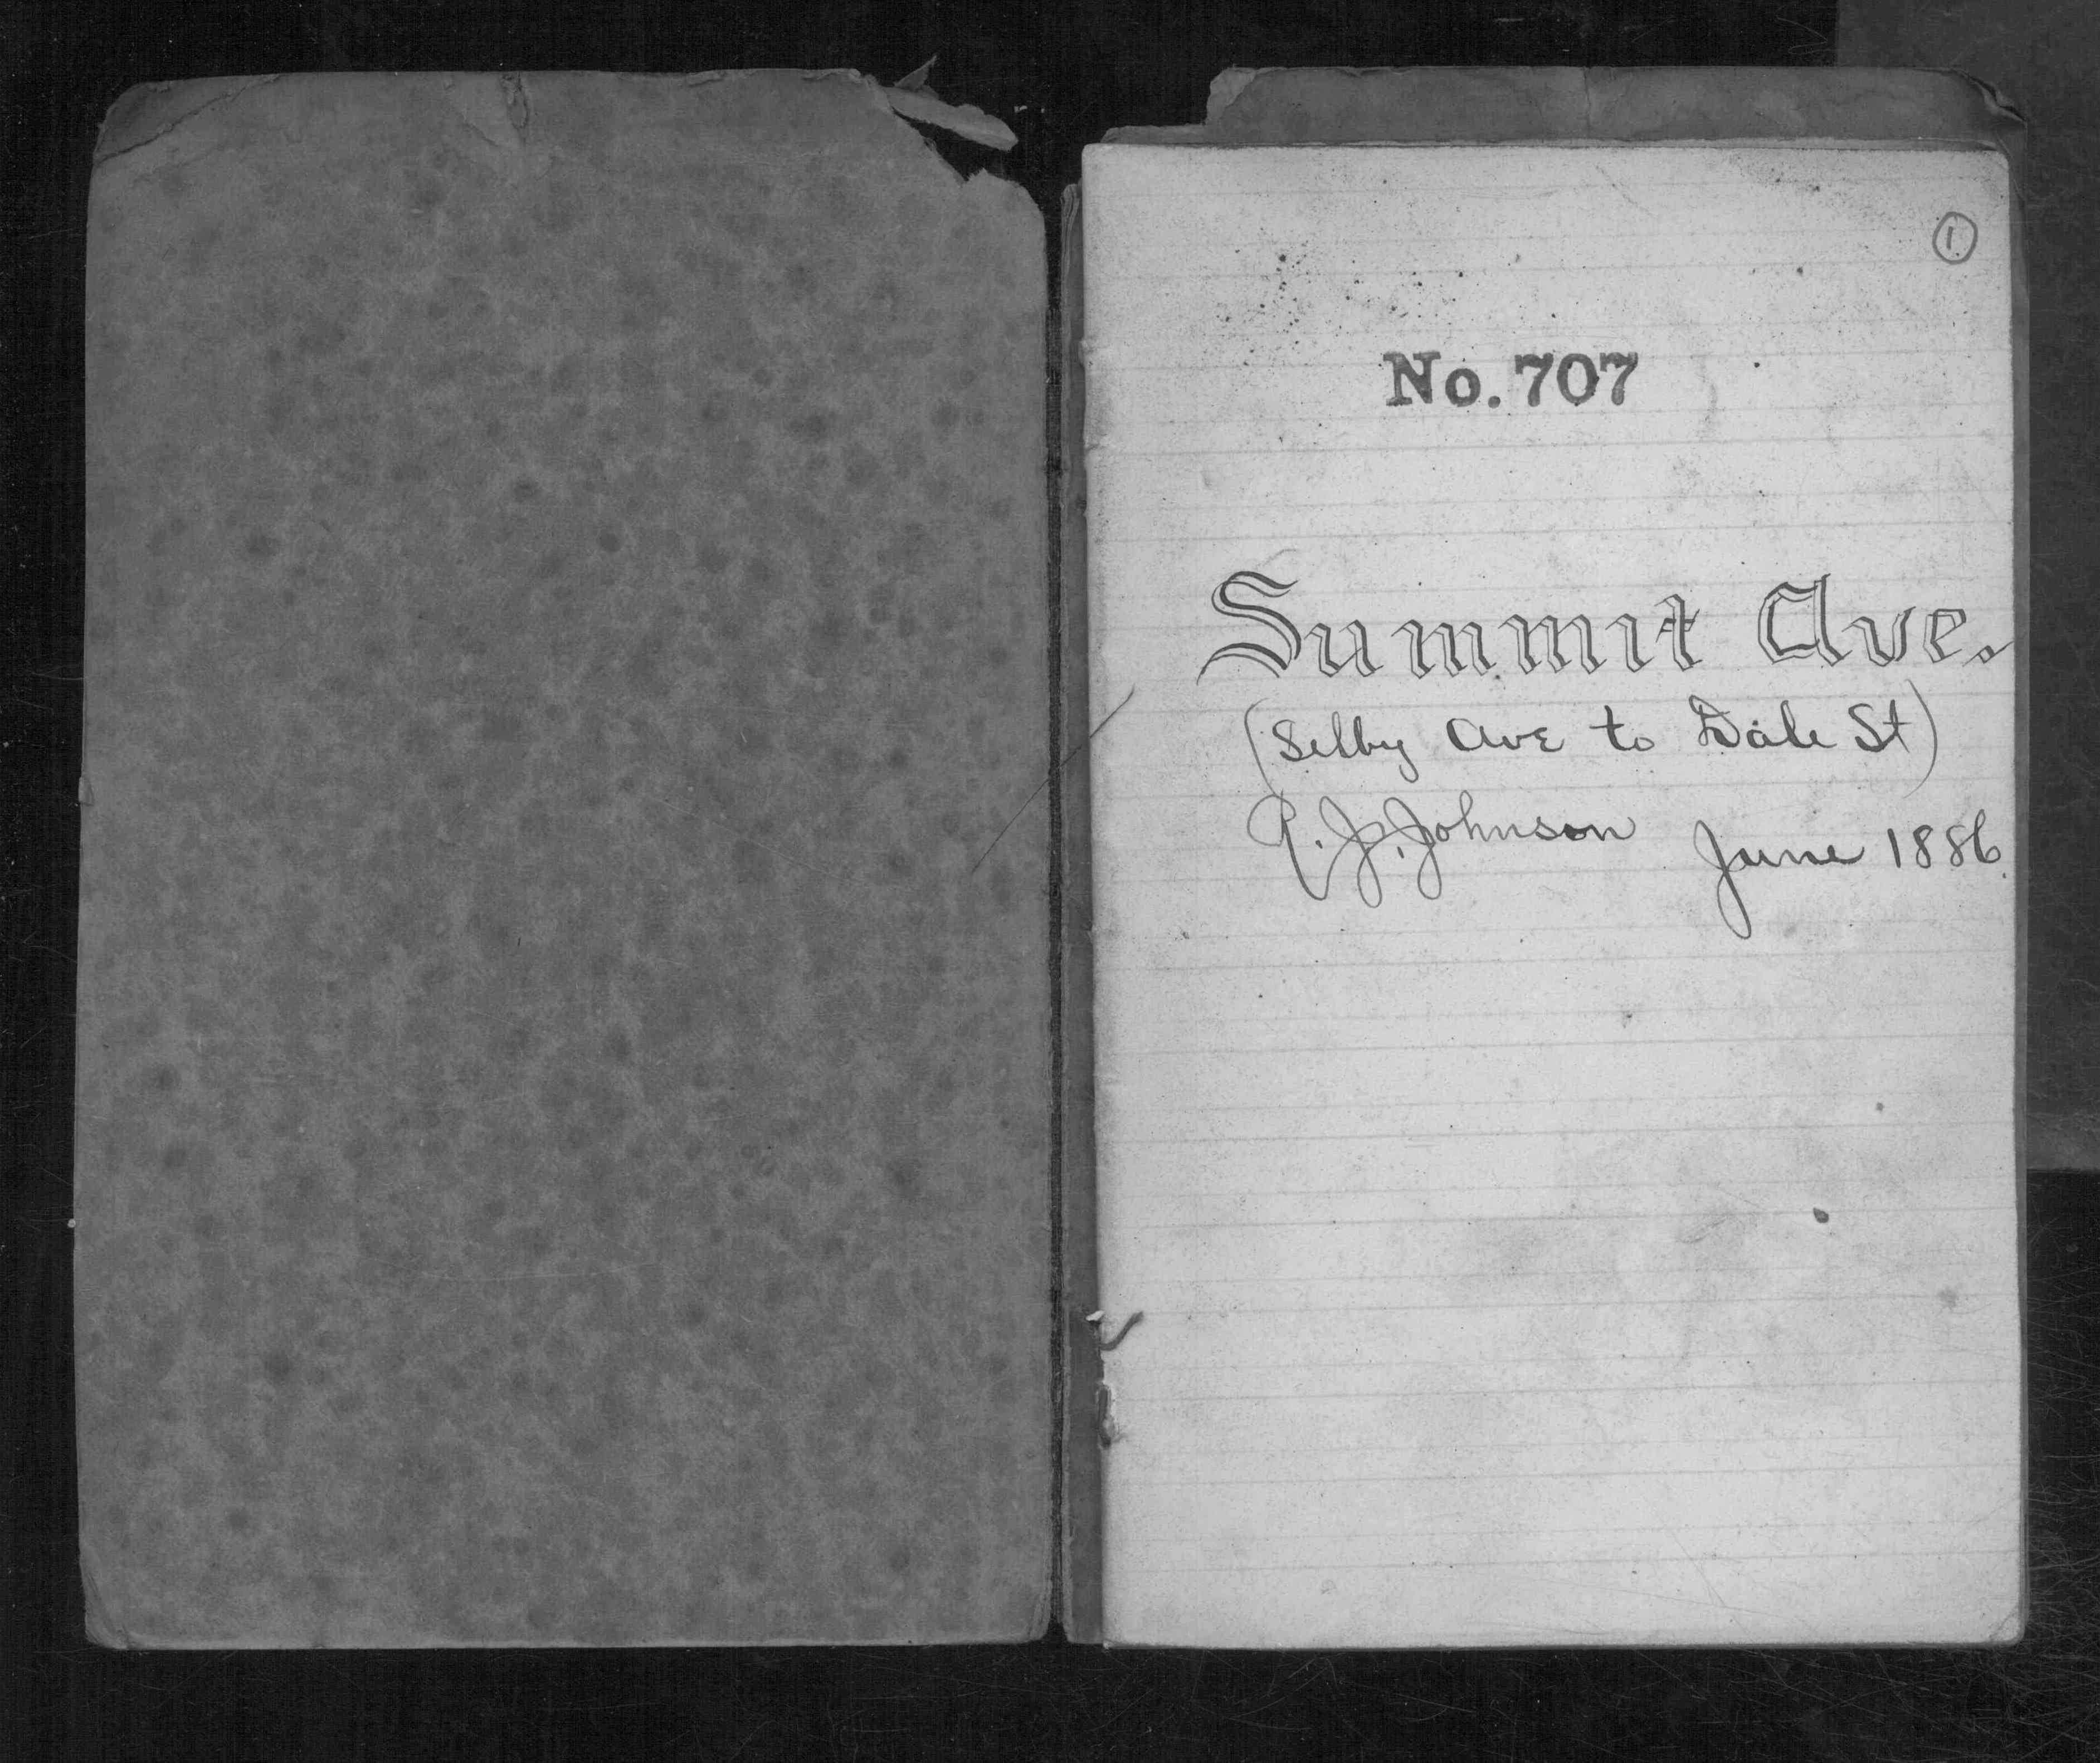 1
No. 707
Summit Ave.
(Selby Ave to Dale St)
J. Johnson June 1886.